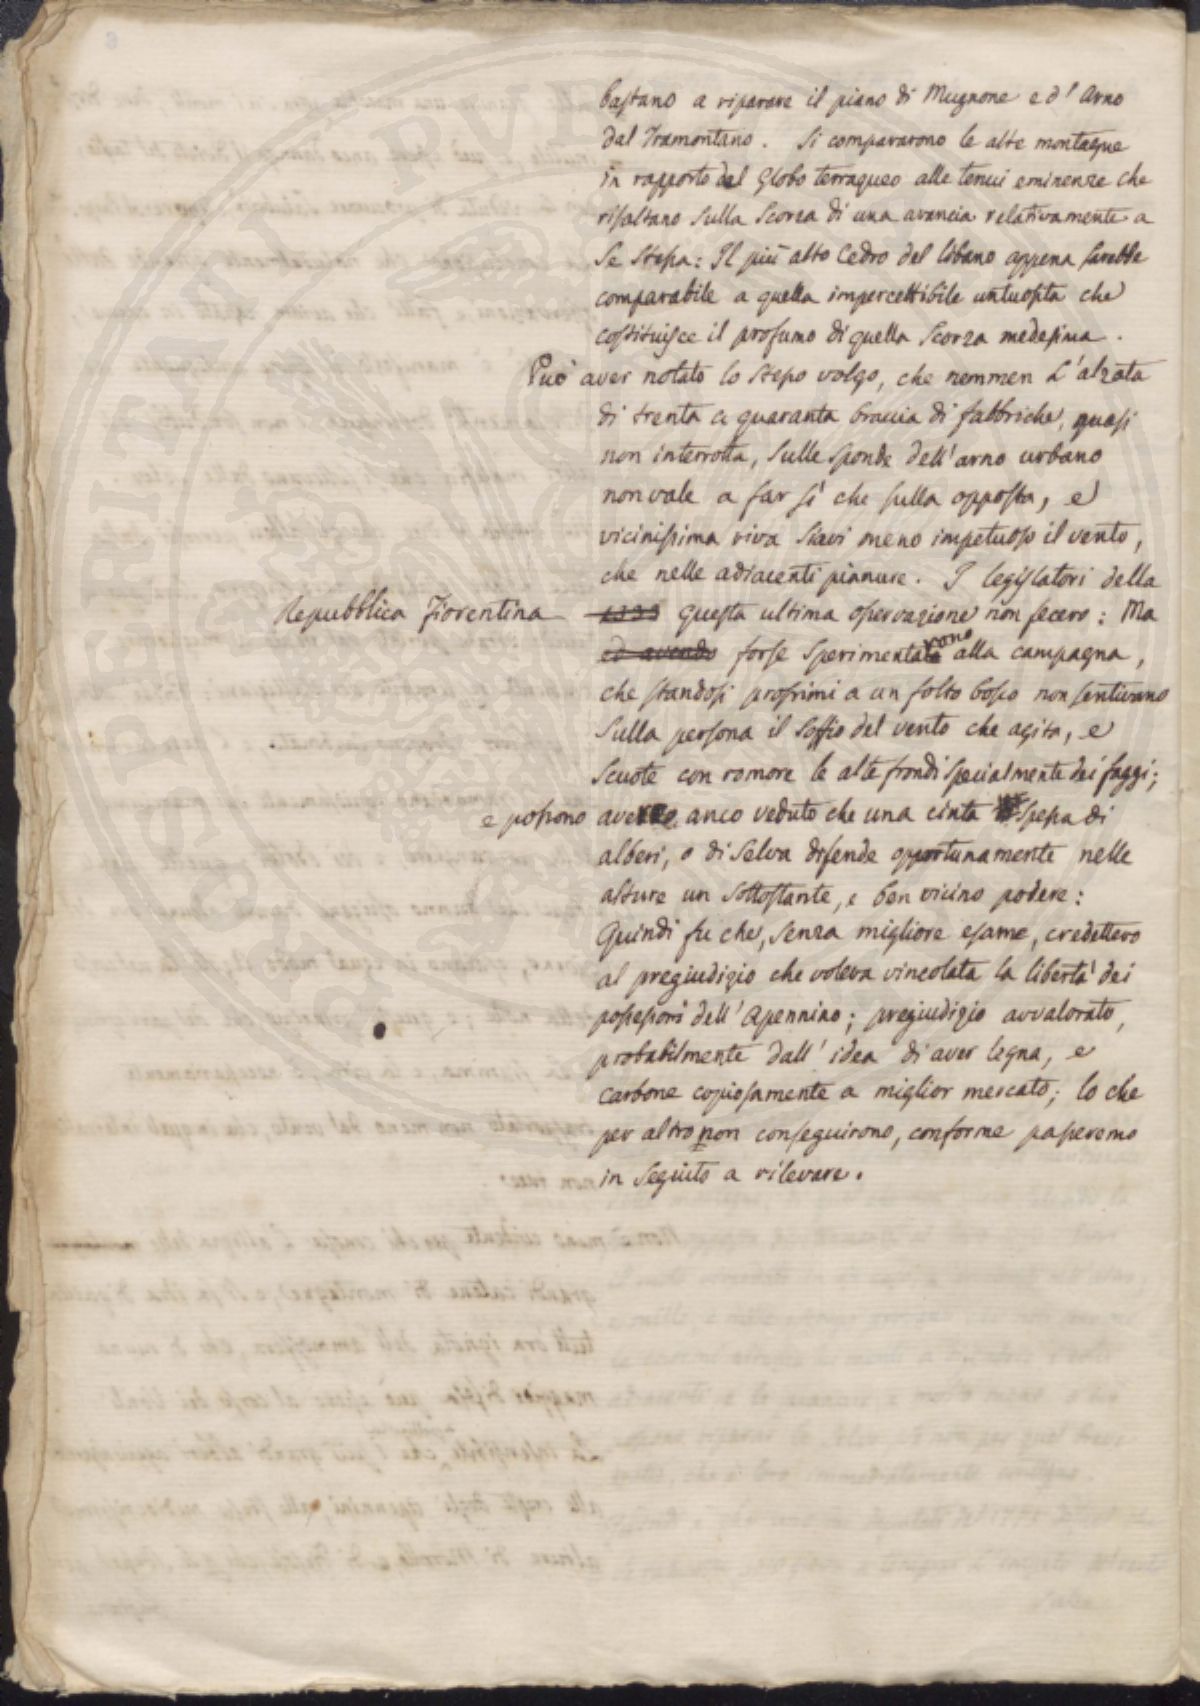 bastano a riparare il piano di Mugnone e d'Arno
dal Tramontano. Si compararono le alte montagne
in rapporto del Globo terraqueo alle tenui eminenze che
risaltano sulla scorza di una arancia relativamente a
se stessa: Il più alto Cedro del libano appena sarebbe
comparabile a quella impercettibile untuosità che
costituisce il profumo di quella scorza medesima.
Può aver notato lo stesso volgo, che nemmen l'alzata
di trenta a quaranta braccia di fabbriche, quasi
non interrotta, sulle sponde dell'arno urbano
non vale a far sì che sulla opposta, e
vicinissima riva siavi meno impetuoso il vento,
che nelle adiacenti pianure. I legislatori della
Repubblica Fiorentina 1333 questa ultima osservazione non fecero: Ma
ed avendo forse sperimentarono alla campagna,
che standosi prossimi a un folto bosco non sentivano
sulla persona il soffio del vento che agita, e
scuote con romore le alte frondi specialmente dei faggi;
e possono avere anco veduto che una cinta spessa di
alberi, o di selva difende opportunamente nelle
alture un sottostante, e ben vicino podere:
Quindi fu che, senza migliore esame, credettero
al pregiudizio che voleva vincolata la libertà dei
possessori dell'Apennino; pregiudizio avvalorato,
probabilmente dall'idea di aver legna, e
carbone copiosamente a miglior mercato; lo che
per altro non conseguirono, conforme passeremo
in seguito a rilevare.